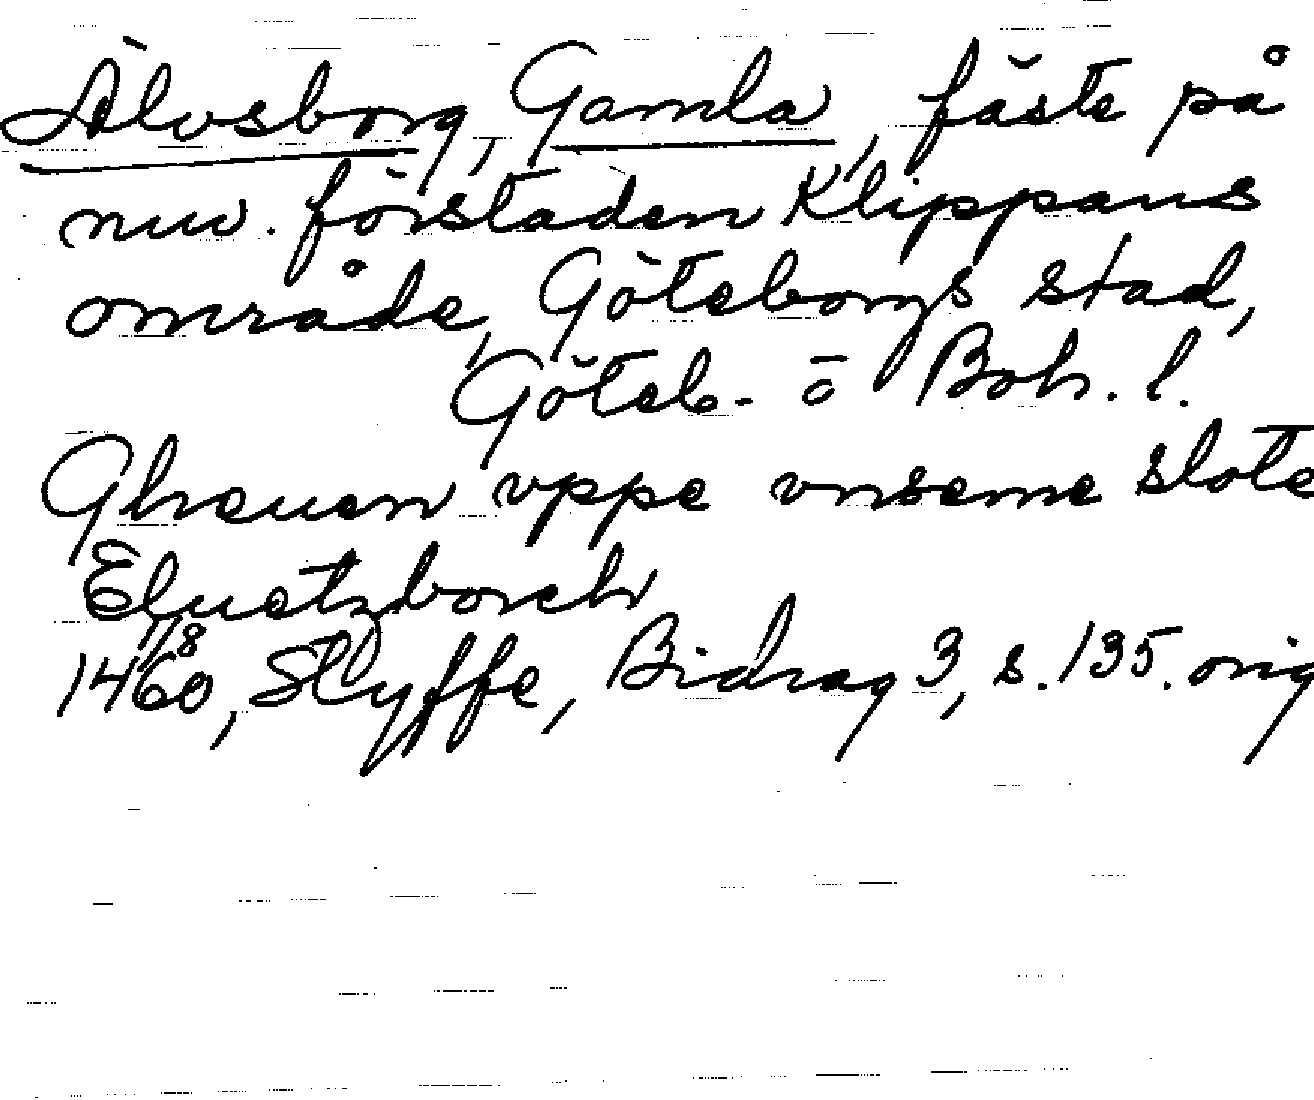 Älvsborg, Gamla, fäste på
nuv. förstaden Klippans
område, Göteborgs stad,
Göteb.- o Boh. l.
Gheuen vppe vnseme slote
Eluetzborch
1460 1/8, Styffe, Bidrag 3, s. 135. orig